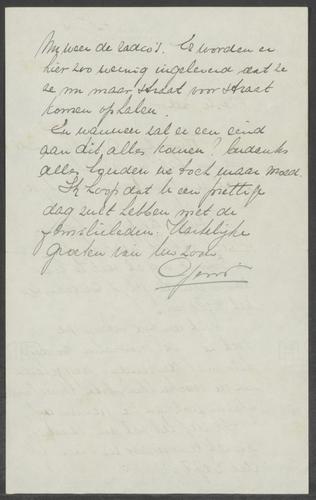 Nu weer de radio's. Ze worden er
hier zoo weinig ingeleverd dat ze
ze nu maar straat voor straat
komen ophalen.
En wanneer zal er een eind
aan dit alles komen? Ondanks
alles houden we toch maar moed.
Ik hoop dat U een prettige
dag zult hebben met de
familieleden. Hartelijke
groeten van Uw zoon